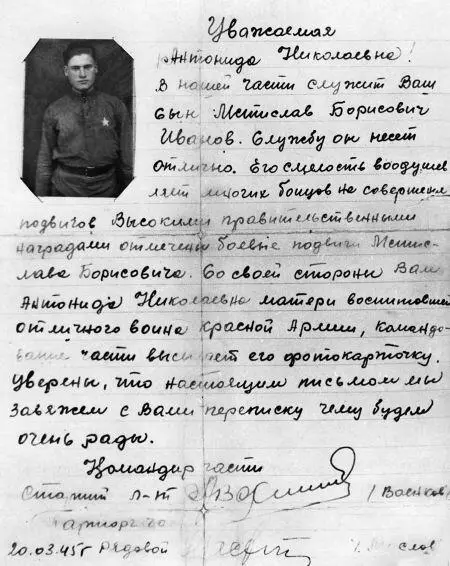 Уважаемая
Антонида Николаевна!
В нашей части служит Ваш
сын Мстислав Борисович
Иванов. Службу он несет
отлично. Его смелость воодушев
ляет многих бойцов на совершение
подвигов Высокими правительственными
наградами отмечены боевые подвиги Мстис-
лава Борисовича. Со своей стороны Вам
Антонида Николаевна матери воспитавшей
отличного воина красной Армии, командо-
вание части высылает его фотокарточку.
Уверены, что настоящим письмом мы
завяжем с Вами переписку чему будем
очень рады.
Командир части
Старший л-нт
Парторг
20.03.45г Рядовой